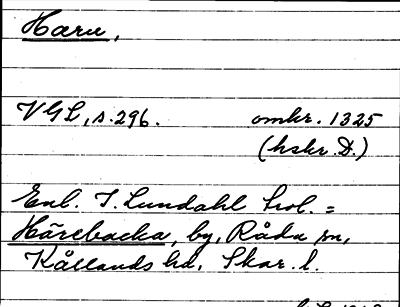 Hæru,
VGL, s. 296. omkr. 1325
(hskr. D.)
Enl. I. Lundahl trol. =
Härebacka, by, Råda sn,
Kållands hd, Skar. l.